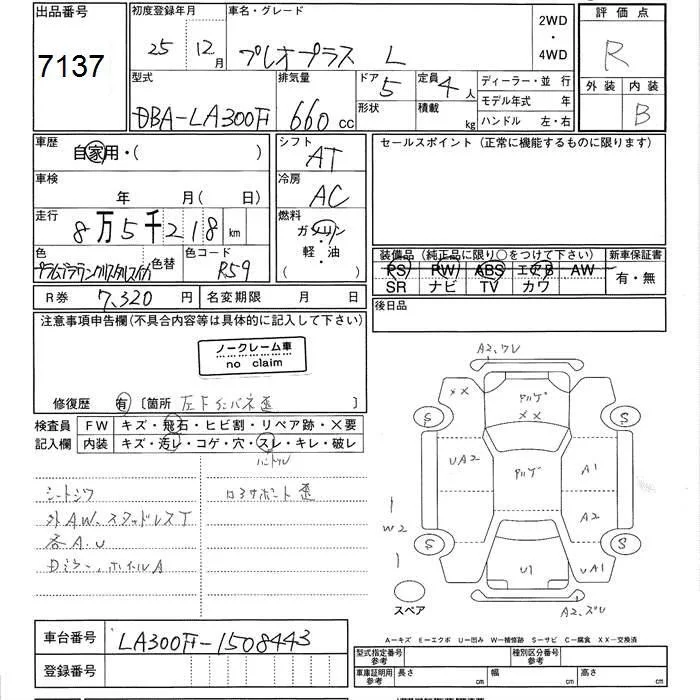 出品番号
7137
初度登録年月
25 12月
車名・グレード
プレオプラス L
2WD
・
4WD
評価点
R
外装 内装
B
型式
DBA-LA300F
排気量
660 cc
ドア
5
形状
定員
4人
積載
kg
ディーラー・並行
モデル年式 年
ハンドル 左・右
車歴
自家用・( )
車検
年 月( 日)
走行
8万5千218 km
色
色替
色コード
R59
シフト
AT
冷房
AC
燃料
ガソリン
・
軽・油
セールスポイント (正常に機能するものに限ります)
装備品 (純正品に限り○をつけて下さい)
PS PW ABS エアB AW
SR ナビ TV カワ
新車保証書
有・無
R券 7,320 円
名変期限 月 日
後日品
注意事項申告欄(不具合内容等は具体的に記入して下さい)
ノークレーム車
no claim
修復歴 有 〔箇所 左Fインパネ歪 〕
検査員
記入欄
FW キズ・飛石・ヒビ割・リペア跡・X要
内装 キズ・汚レ・コゲ・穴・スレ・キレ・破レ
ハンドル
シートシワ
ロアサポート歪
外A.W、スタッドレスT
各A.U
Dミラー、ホイルA
A2,ワレ
XX
アルゲ
XX
S
S
UA2
アルゲ
A1
W2
A2
S
S
U1
UA1
スペア
A2,ズレ
A-キズ E-エクボ U-凹み W-補修跡 S-サビ C-腐食 XX-交換済
車台番号
LA300F-1508443
登録番号
型式指定番号
参考
種別区分番号
参考
車庫証明用
参考
長さ cm
幅 cm
高さ cm